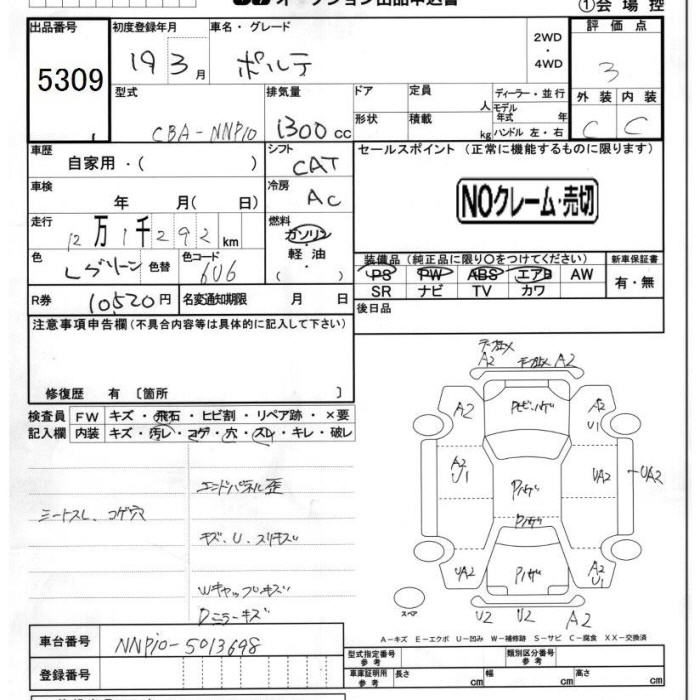 オークション出品申込書
①会場控
出品番号
5309
初度登録年月
19 3月
車名・グレード
ポルテ
2WD
・
4WD
評価点
3
外装 内装
C C
型式
CBA-NNP10
排気量
1300cc
ドア
形状
定員
人
積載
kg
ディーラー・並行
モデル年式 年
ハンドル 左・右
車歴
自家用・( )
シフト
CAT
セールスポイント (正常に機能するものに限ります)
NOクレーム・売切
車検
年 月( 日)
冷房
AC
走行
12万1千292km
燃料
ガソリン
軽油
( ・ )
色
Lグリーン 色替
色コード
6U6
装備品 (純正品に限り○をつけてください)
PS PW ABS エアB AW
SR ナビ TV カワ
新車保証書
有・無
R券 10520円
名変通知期限 月 日
後日品
注意事項申告欄(不具合内容等は具体的に記入して下さい)
修復歴 有 〔箇所 〕
検査員
記入欄
FW キズ・飛石・ヒビ割・リペア跡・×要
内装 キズ・汚レ・コゲ・穴・スレ・キレ・破レ
エンドパネル歪
シートスレ、コゲ穴
キズ、U、スリキズ
Wキャップキズ
Dミラーキズ
A2 A2
A2
A2
U1
A2
U1
UA2
UA2
UA2
A2
U1
U2 U2 A2
スペア
A-キズ E-エクボ U-凹み W-補修跡 S-サビ C-腐食 XX-交換済
車台番号
NNP10-5013698
登録番号
型式指定番号
参考
類別区分番号
参考
車庫証明用
参考
長さ cm
幅 cm
高さ cm